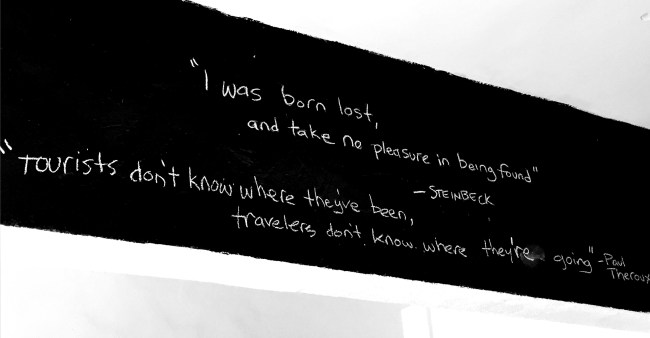 "I was born lost,
and take no pleasure in being found"
- STEINBECK
"Tourists don't know where they've been,
travelers don't know where they're going" -Paul
Theroux